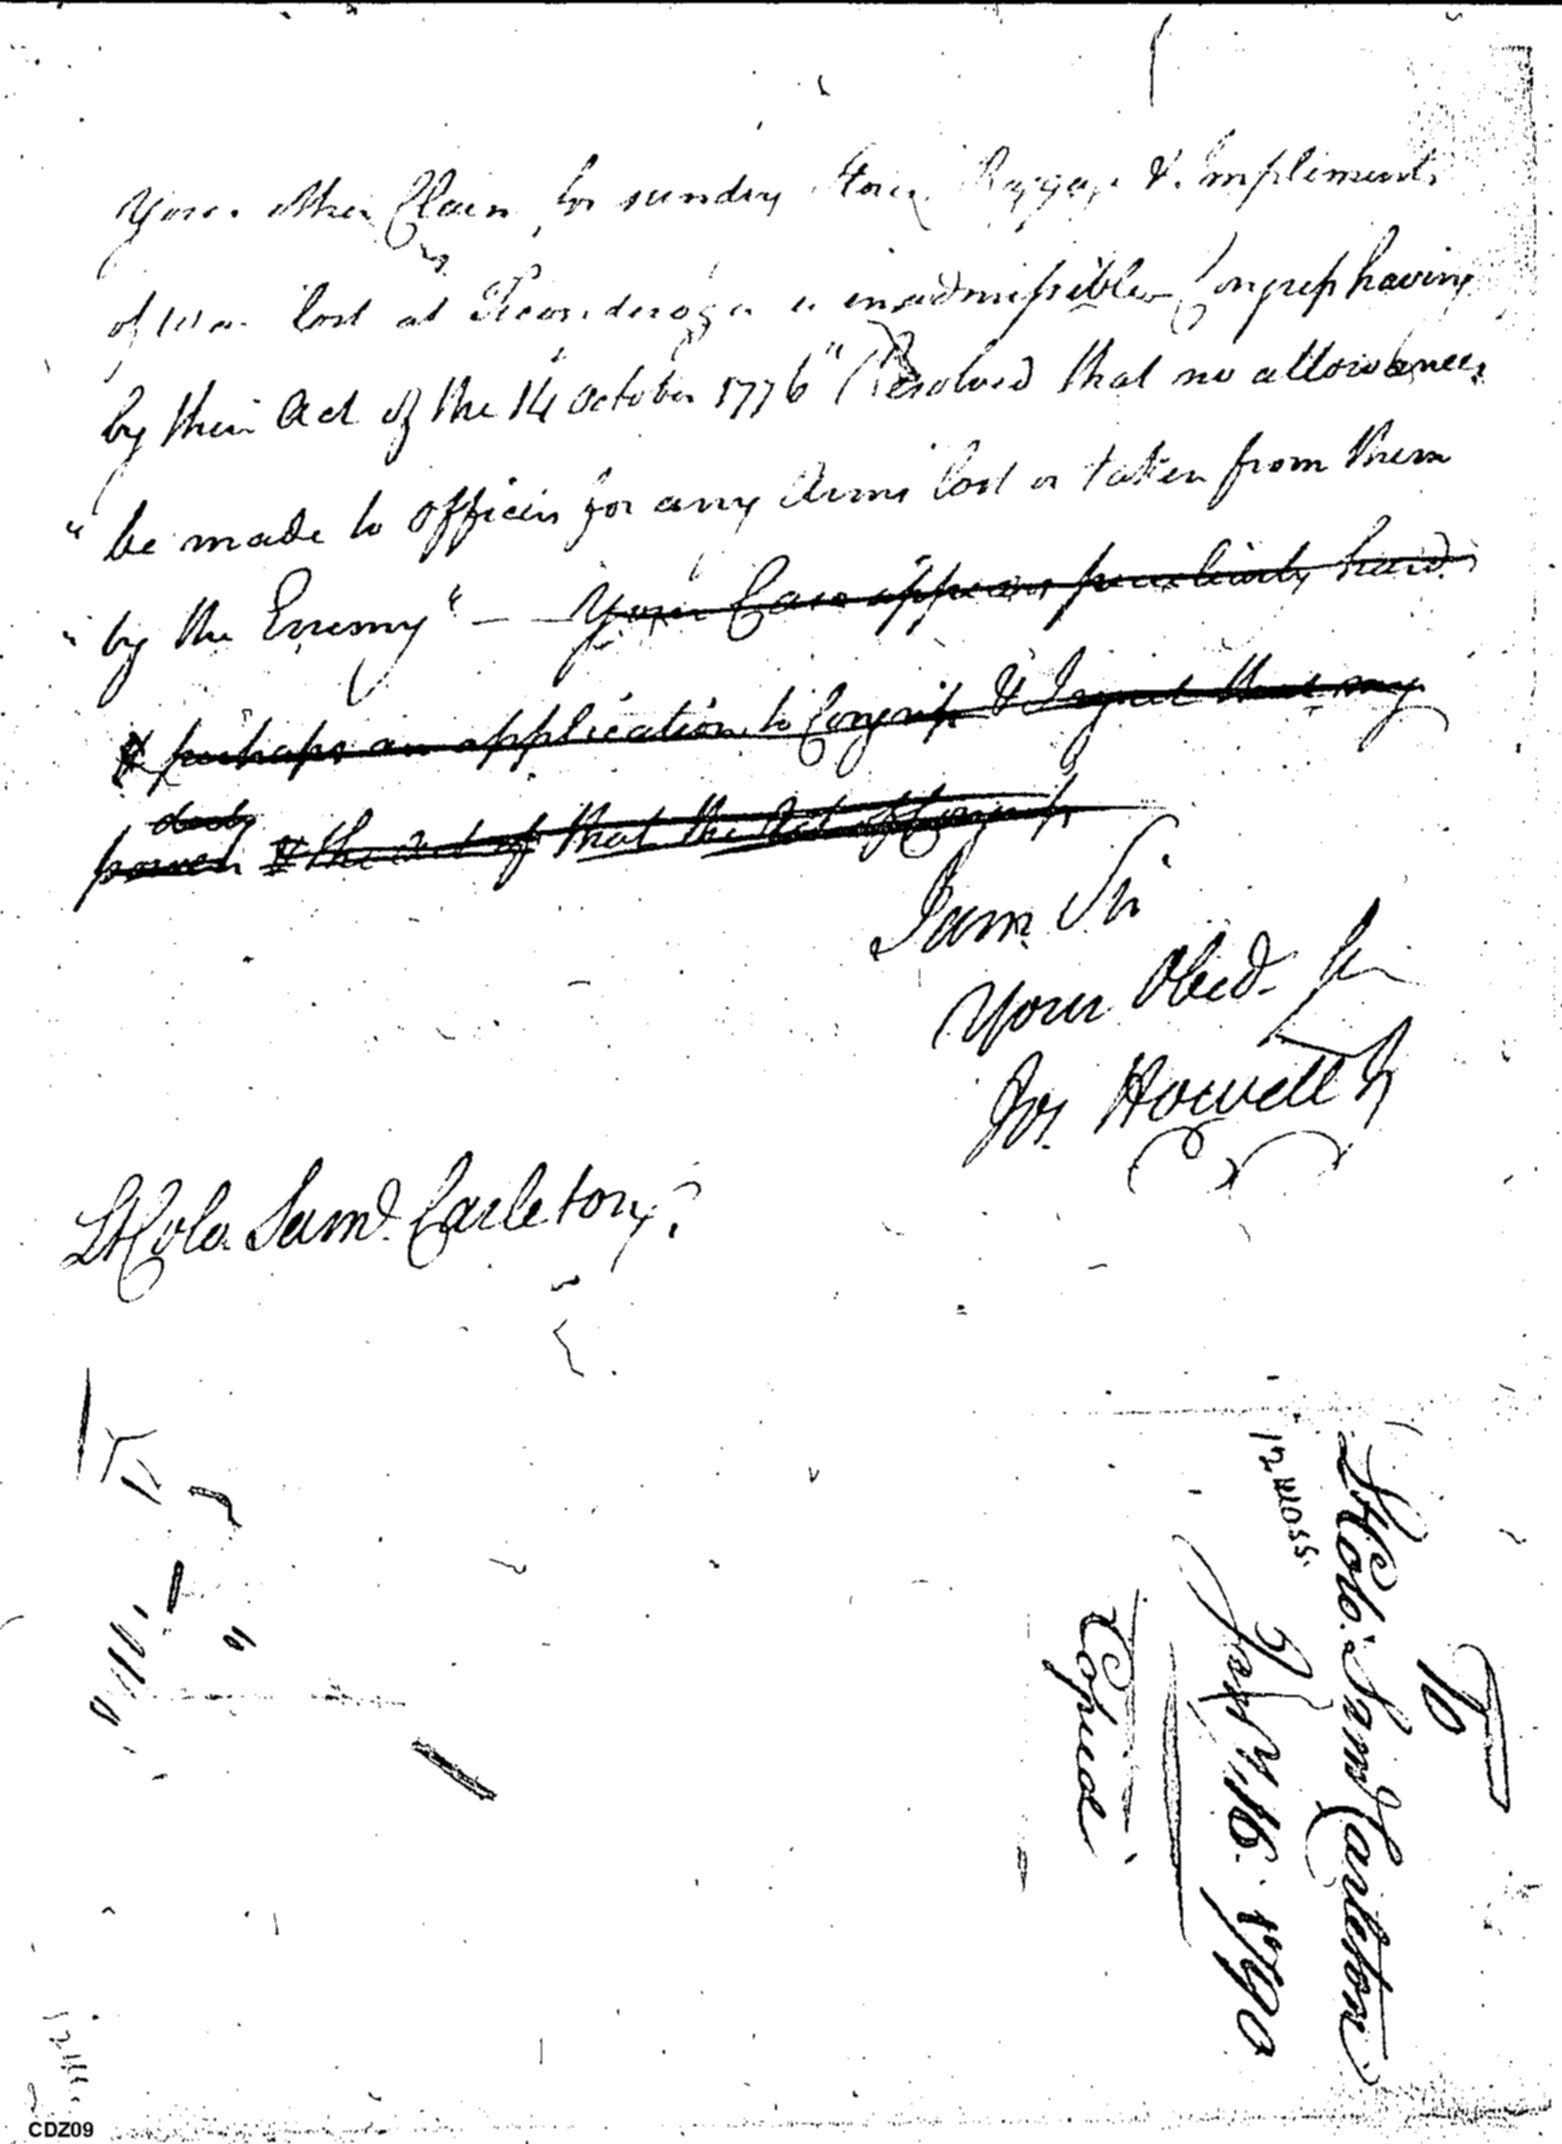 Your other Claim for sundry Stores Baggage & Impliments
of War lost at Ticonderoga is inadmissible Congress having
by their Act of the 14 October 1776 "Resolved that no allowances
" be made to officers for any Arms lost or taken from them
" by the Enemy" — Your Case appears peculiarly hard
& perhaps an application to Congress & I regret that my
duty
powers & the act of that the Act of Congress
I am Sir
Your Obed. Ser
Jos Howell Jr
Lt Colo. Saml. Carleton
To
Lt Colo. Saml Carleton
12 Mass.
July 16. 1790
Copied
CDZ09